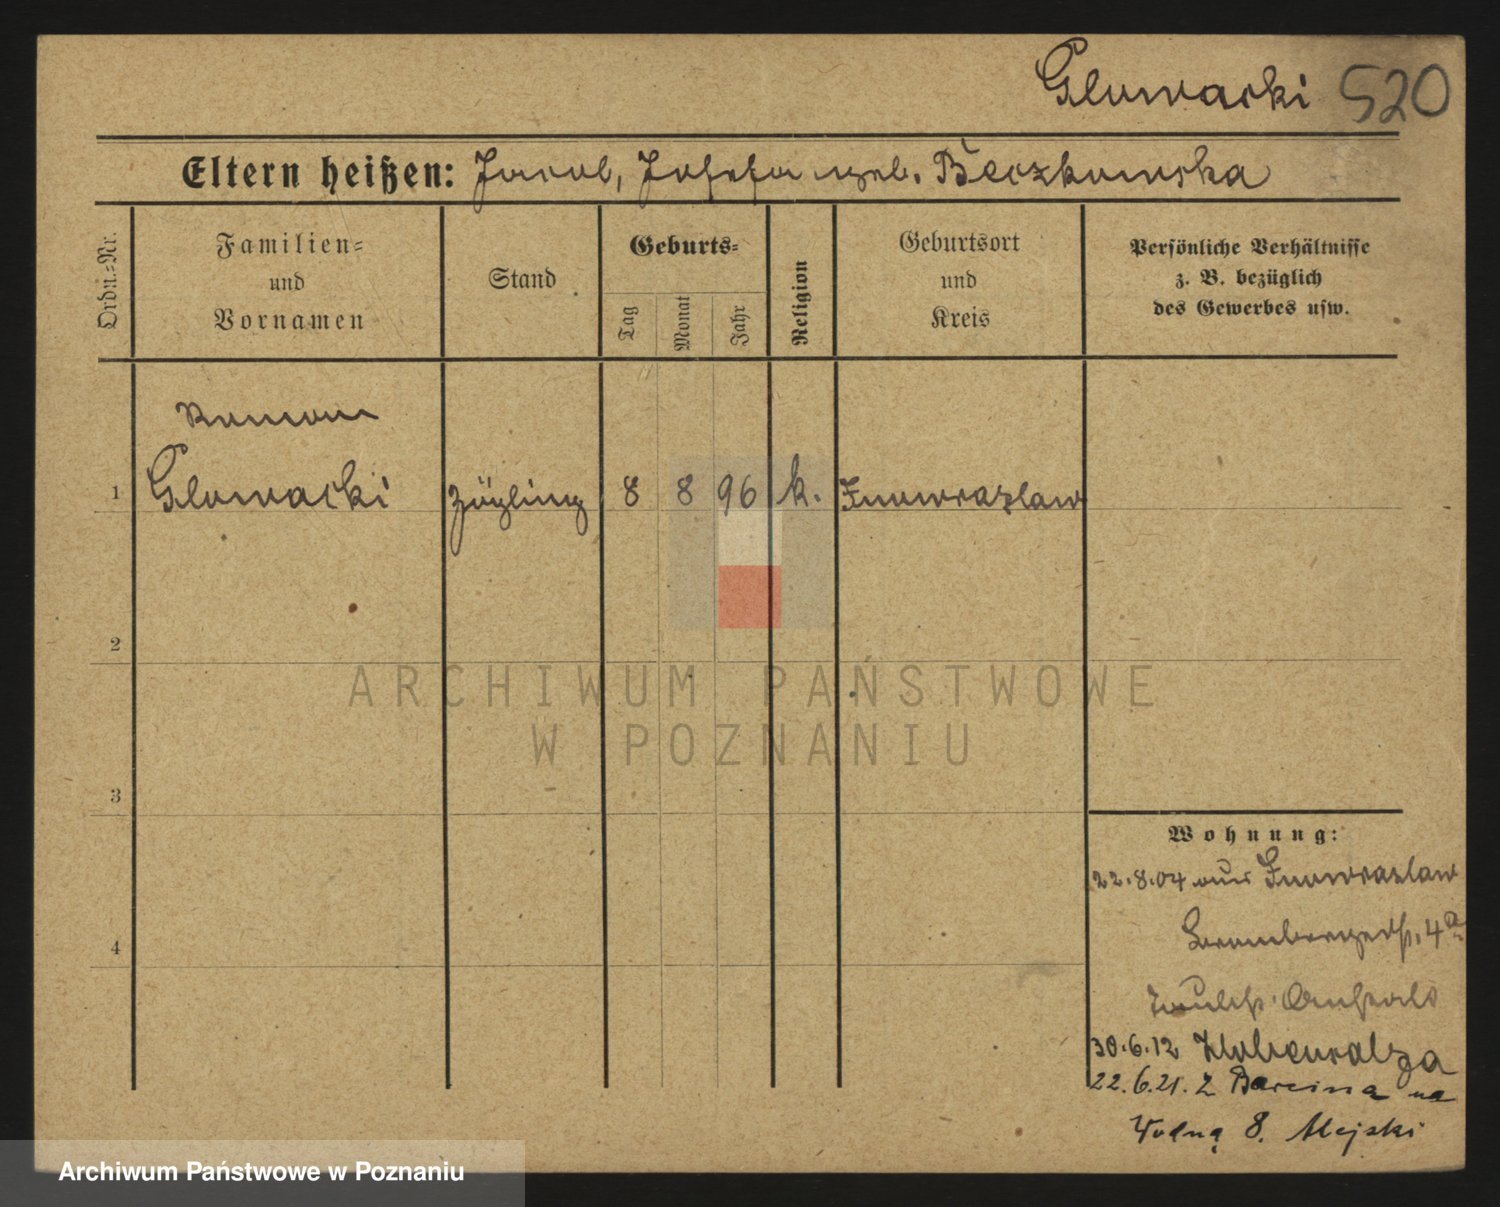 Glowacki 520
Eltern heißen: Jacob, Josefa geb. Beczkowska
Ordn.-Nr.
Familien-
und
Vornamen
Stand
Geburts-
Tag
Monat
Jahr
Religion
Geburtsort
und
Kreis
Persönliche Verhältnisse
z. B. bezüglich
des Gewerbes usw.
Roman
1 Glowacki Zögling 8 8 96 k. Inowrazlaw
2
3
4
ARCHIWUM PAŃSTWOWE
W POZNANIU
Wohnung:
22.8.04 aus Inowrazlaw
Brombergerstr. 4a
Taubst. Anstalt
30.6.12
22.6.21. z Barcina na
Wodną 8. Alejski
Archiwum Państwowe w Poznaniu